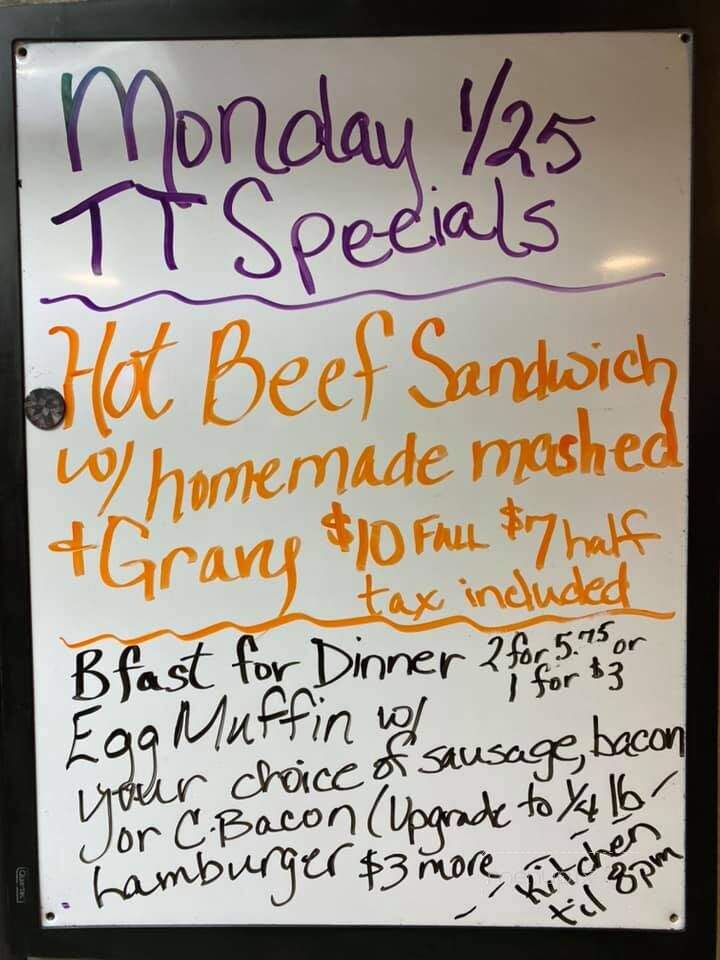 Monday 1/25
TT Specials
Hot Beef Sandwich
w/ homemade mashed
+ Gravy $10 Full $7 half
tax included
Bfast for Dinner 2 for 5.75 or
1 for $3
Egg Muffin w/
your choice of sausage, bacon
or C.Bacon (Upgrade to 1/4 lb
hamburger $3 more
Kitchen
til 8pm